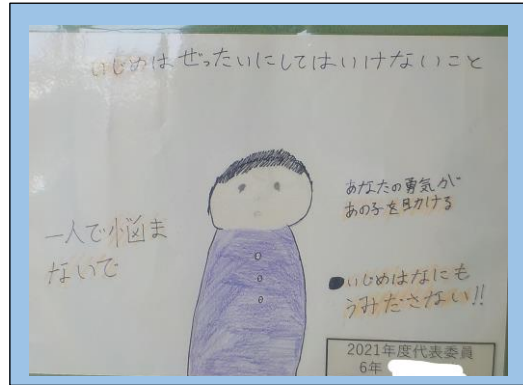 いじめはぜったいにしてはいけないこと
一人で悩ま
ないで
あなたの勇気が
あの子を助ける
●いじめはなにも
うみださない!!
2021年度代表委員
6年